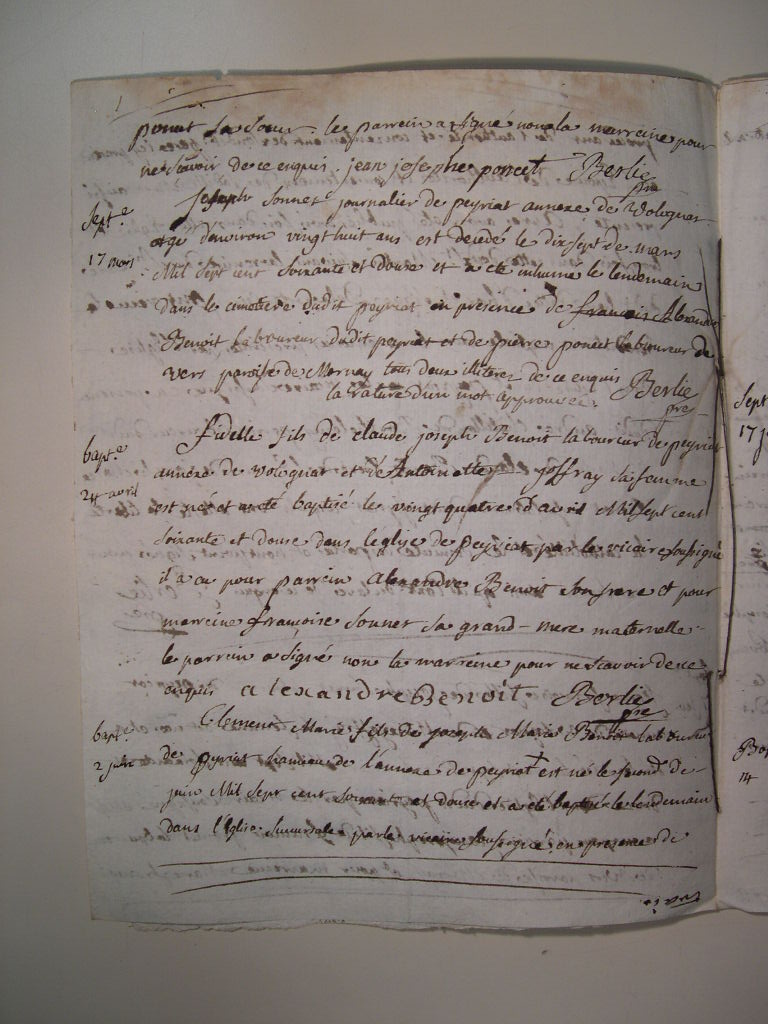 poncet sa soeur. le parrein a signé non la marreine pour
ne scavoir de ce enquis. jean josephe poncet Berlie
pre
Sept.e
17 mars
joseph sonnet journalier de peyriat annexe de Volognat
agé d'environ vingt huit ans est decedé le dix sept de mars
Mil sept cent soixante et douse et a eté inhumé le lendemain
dans le cimetiere dudit peyriat en presence de françois Alexandre
Benoit laboureur dudit peyriat et de pierre poncet laboureur de
vers paroisse de Mornay tous deux illiterez de ce enquis Berlie
la rature d'un mot approuvée. pre
bapt.e
24 avril
fidelle fils de claude joseph Benoit laboureur de peyriat
annexe de volognat et d'Antoinette joffray sa femme
est né et a eté baptisé le vingt quatre d'avril Mil sept cent
soixante et douse dans l'eglise de peyriat par le vicaire soussigné
il a eu pour parrein alexandre Benoit son frere et pour
marreine françoise sonnet sa grand-mere maternelle
le parrein a signé non la marreine pour ne scavoir de ce
enquis alexandre Benoit Berlie
pre
bapt.e
2 juin
Clement Marie fils de joseph Marie Benoit laboureur
de hameau de l'annexe de peyriat est né le second de
juin Mil sept cent soixante et douse et a eté baptisé le lendemain
dans l'Eglise succursale par le vicaire soussigné en presence de
Sept
17 j
Bap
14